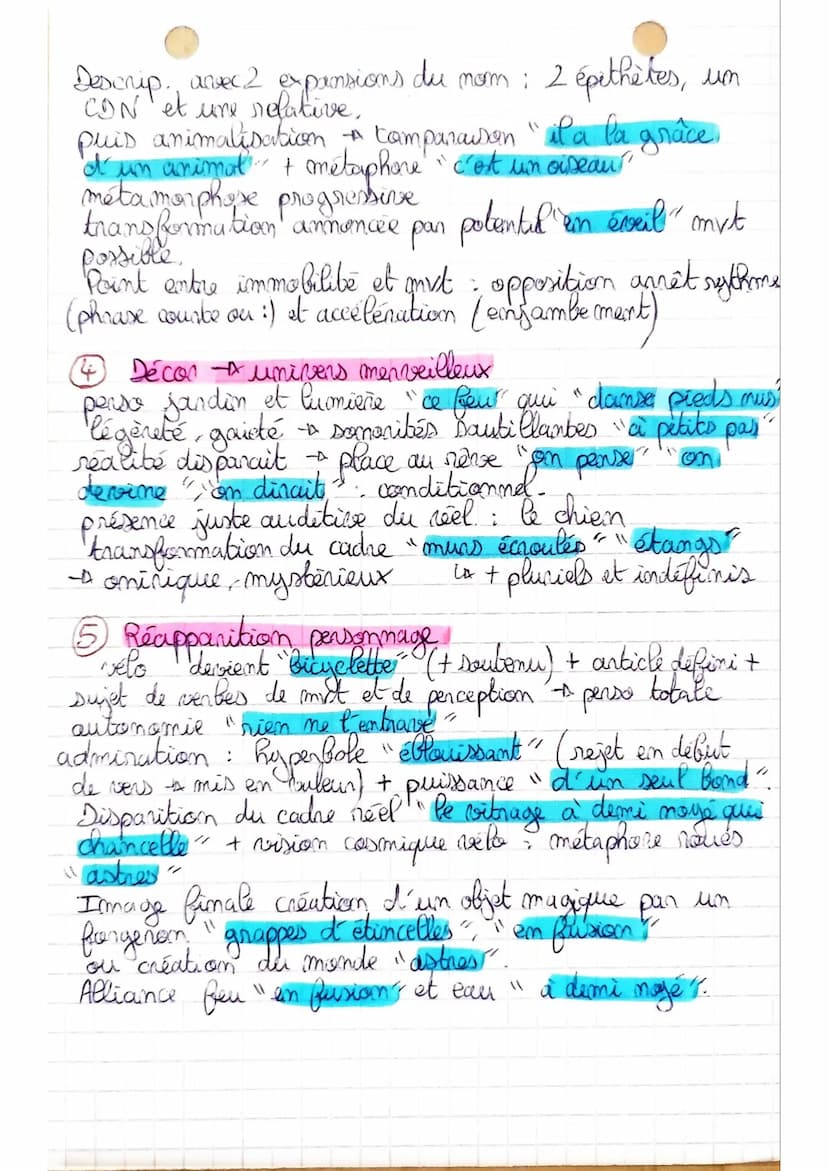 Descrip. avec 2 expansions du nom : 2 épithètes, un
CDN et une relative.
puis animalisation → comparaison "il a la grâce
d'un animal" + métaphore "c'est un oiseau"
métamorphose progressive
transformation annoncée par potentiel "en éveil" mvt
possible.
Point entre immobilité et mvt : opposition arrêt rythme
(phrase courte ou :) et accélération (enjambement)
④ Décor → univers merveilleux
perso jardin et lumière "ce feu" qui "danse pieds nus"
légèreté, gaieté → sonorités sautillantes "à petits pas"
réalité disparait → place au rêve "on pense" "on
devine", "on dirait" : conditionnel.
présence juste auditive du réel : le chien
transformation du cadre "murs écroulés" "étangs"
→ onirique, mystérieux ↳ + pluriels et indéfinis
⑤ Réapparition personnage
vélo devient "bicyclette" (+ soutenu) + article défini +
sujet de verbes de mvt et de perception → perso totale
autonomie "rien ne l'entrave"
admiration : hyperbole "éblouissant" (rejet en début
de vers → mis en valeur) + puissance "d'un seul bond".
Disparition du cadre réel "le vitrage à demi noyé qui
chancelle" + vision cosmique vélo : métaphore roues
"astres"
Image finale création d'un objet magique par un
forgeron "grappes d'étincelles", "en fusion"
ou création du monde "astres".
Alliance feu "en fusion" et eau "à demi noyé".